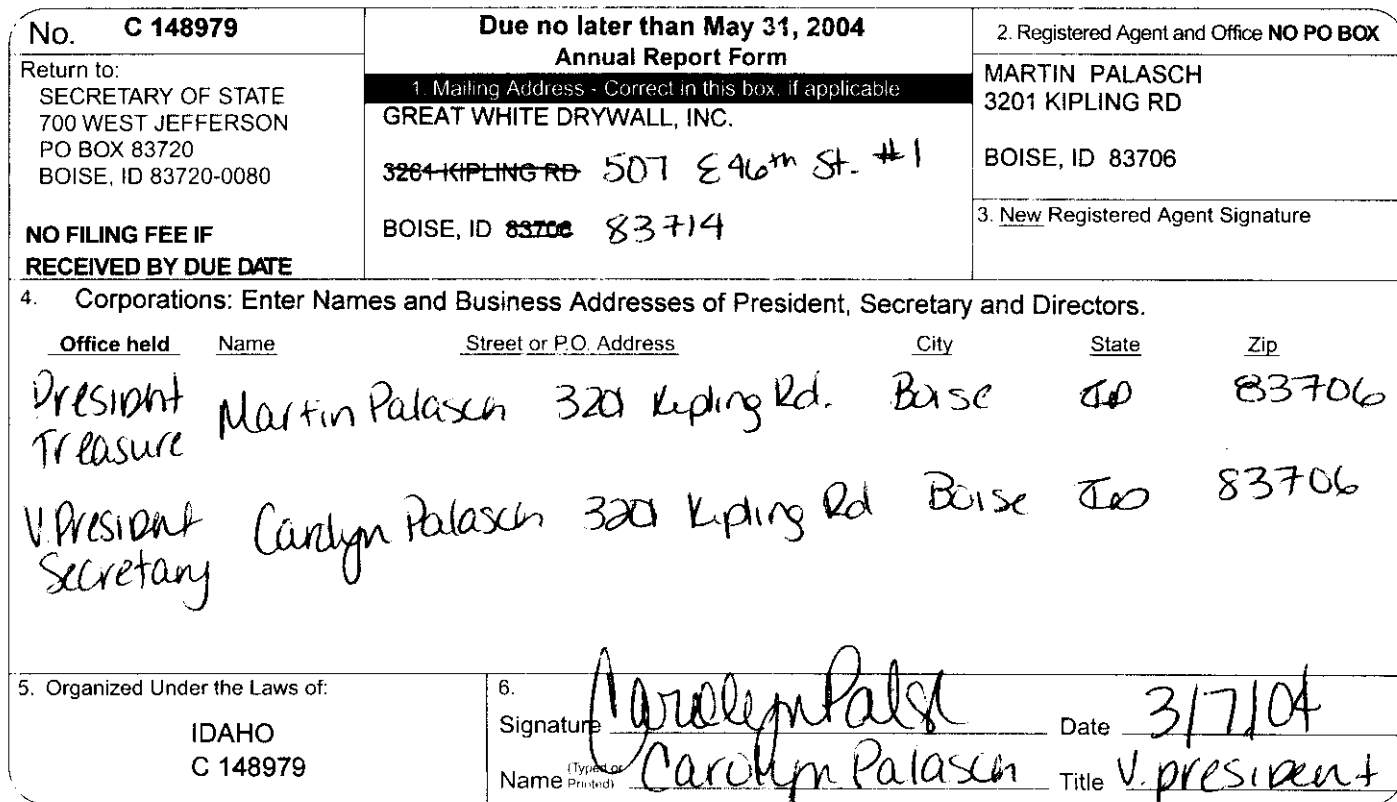 No. C 148979
Return to:
SECRETARY OF STATE
700 WEST JEFFERSON
PO BOX 83720
BOISE, ID 83720-0080
NO FILING FEE IF
RECEIVED BY DUE DATE
Due no later than May 31, 2004
Annual Report Form
1. Mailing Address - Correct in this box, if applicable
GREAT WHITE DRYWALL, INC.
3201 KIPLING RD 507 E 46th St. #1
BOISE, ID 83706 83714
2. Registered Agent and Office NO PO BOX
MARTIN PALASCH
3201 KIPLING RD
BOISE, ID 83706
3. New Registered Agent Signature
4. Corporations: Enter Names and Business Addresses of President, Secretary and Directors.
Office held Name Street or P.O. Address City State Zip
Presidnt Martin Palasch 3201 Kipling Rd. Boise ID 83706
Treasure
V.President Carolyn Palasch 3201 Kipling Rd Boise ID 83706
Secretary
5. Organized Under the Laws of:
IDAHO
C 148979
6.
Signature Carolyn Palsc Date 3/7/04
Name (Typed or Printed) Carolyn Palasch Title V.president